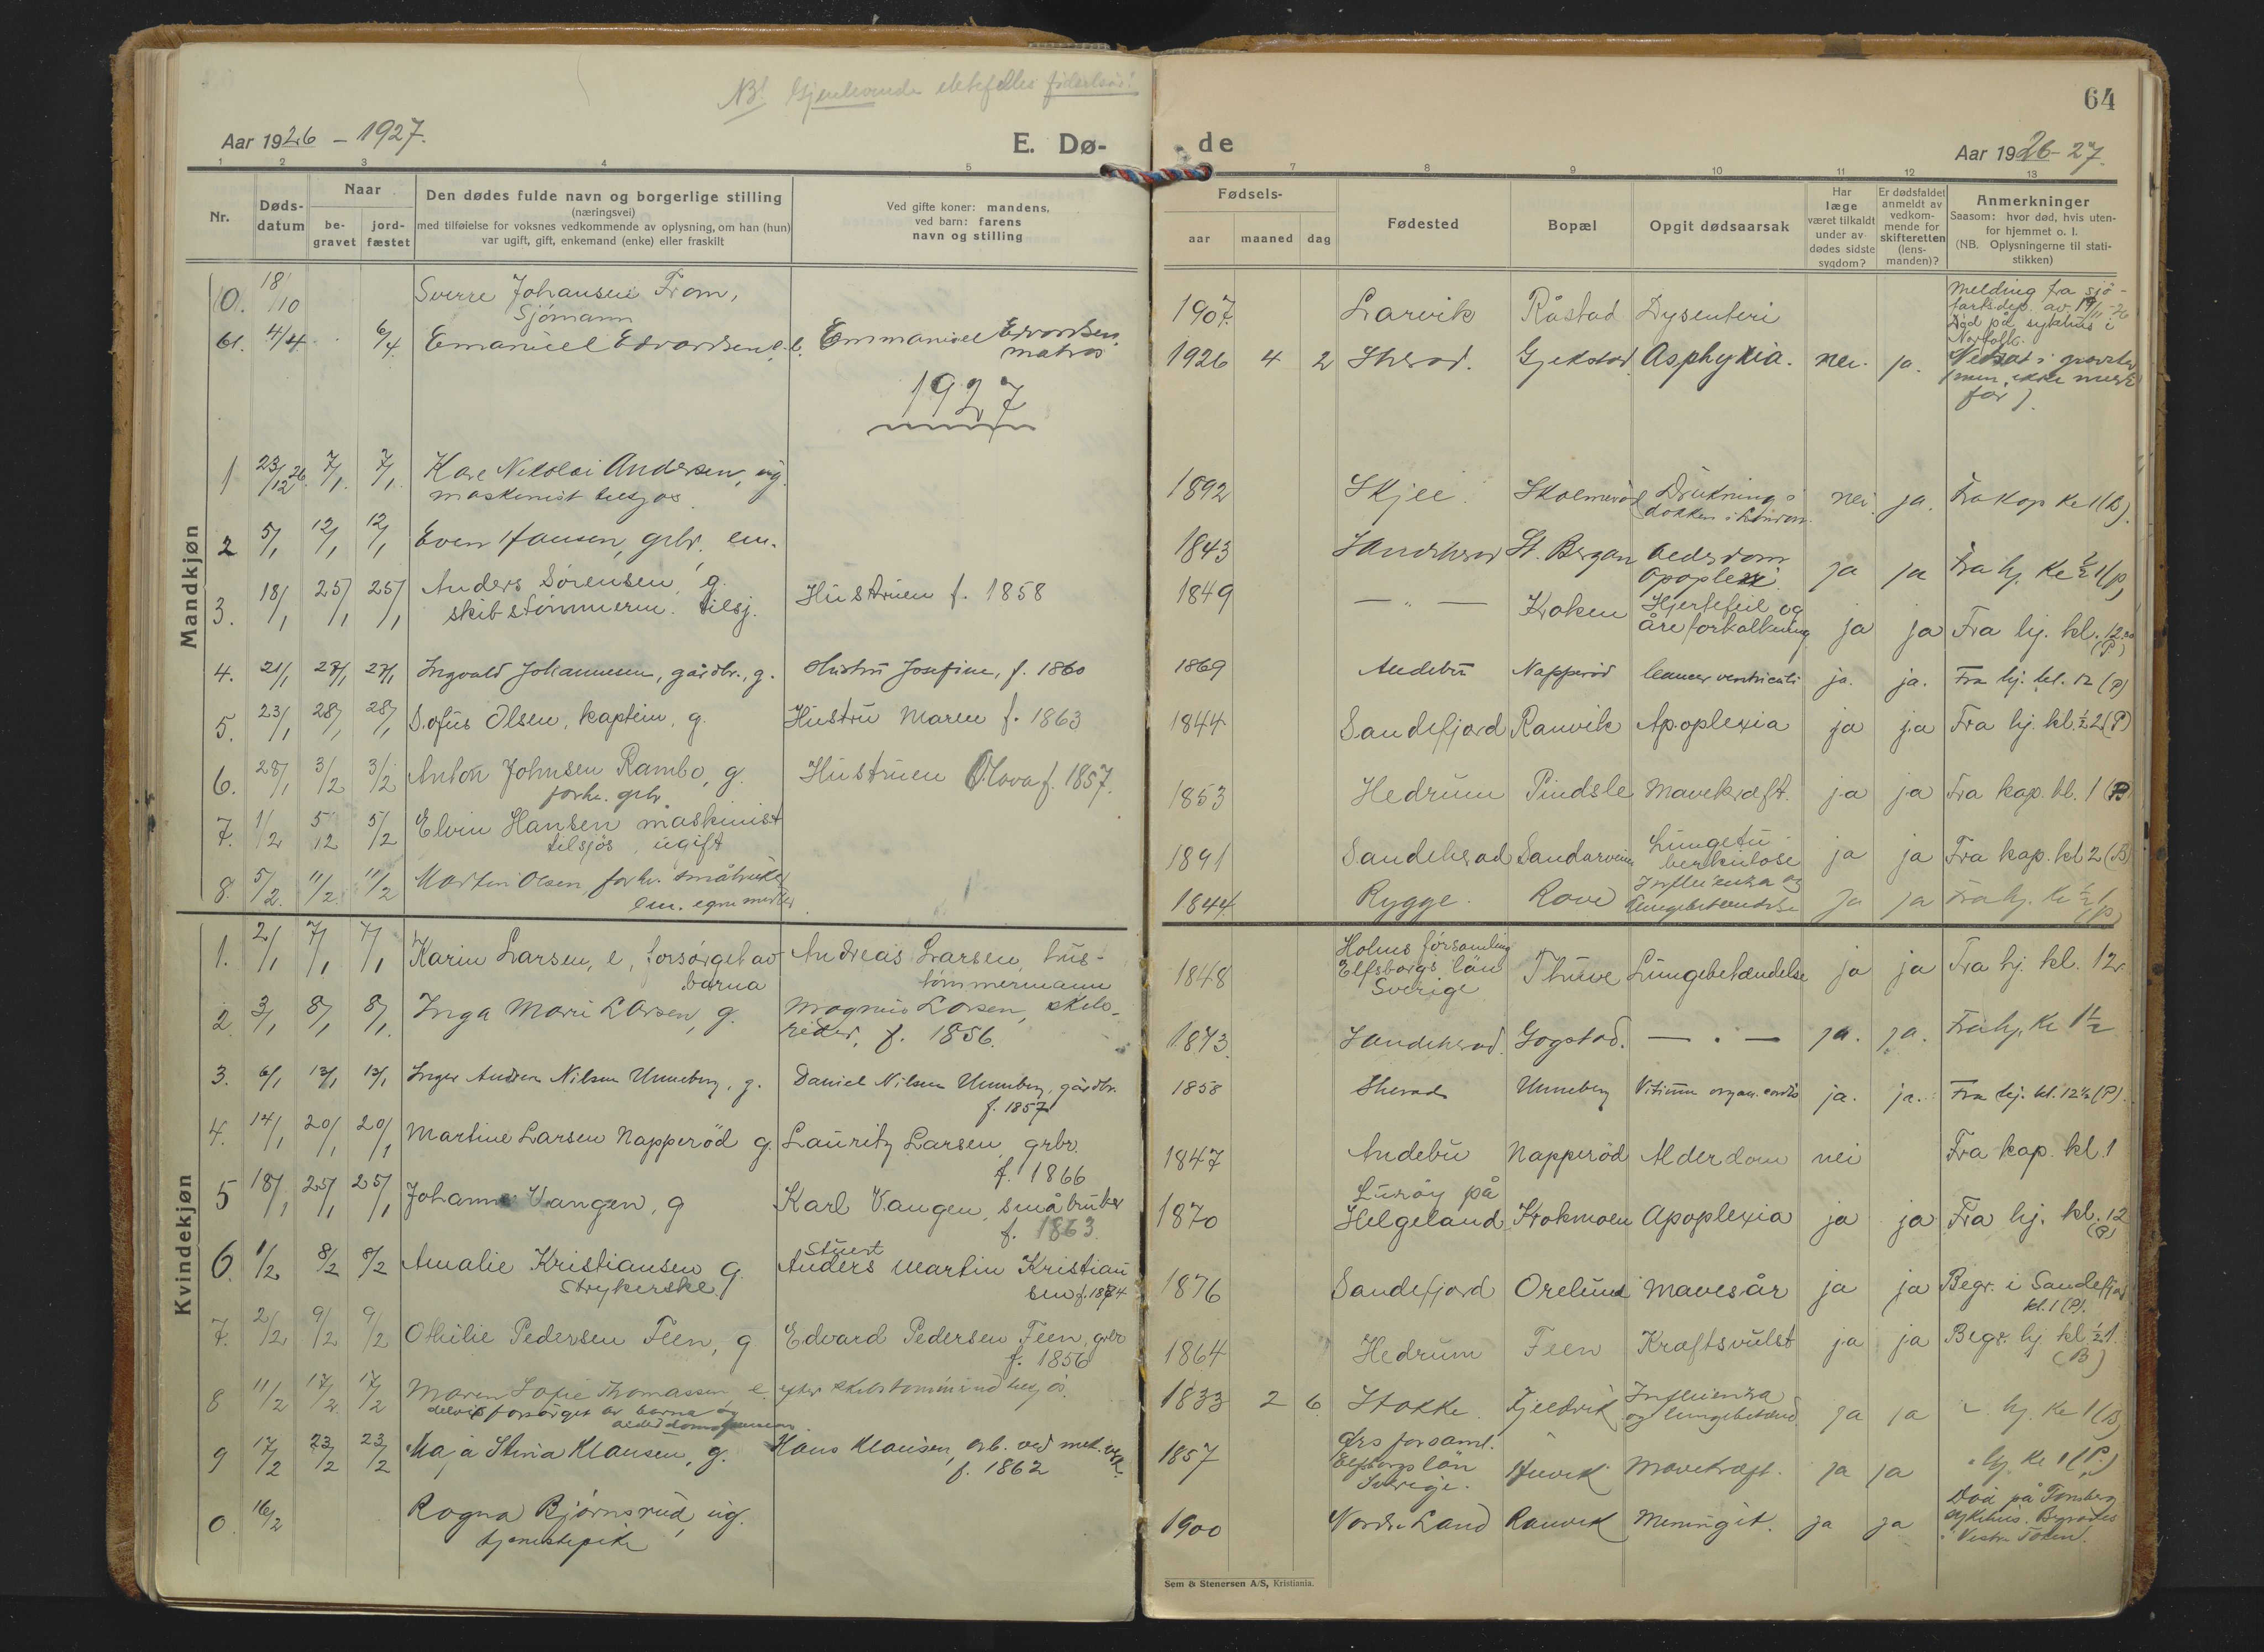 NB! Gjenlevende ektefelles födselsår!
Aar 1926 - 1927.
E. Dø-
1 2 3 4 5
Nr.
Døds-
datum
Naar
be-
gravet
jord-
fæstet
Den dødes fulde navn og borgerlige stilling
(næringsvei)
med tilføielse for voksnes vedkommende av oplysning, om han (hun)
var ugift, gift, enkemand (enke) eller fraskilt
Ved gifte koner: mandens,
ved barn: farens
navn og stilling
Mandkjøn
0. 18/10 Sverre Johansen From,
Sjömann
61. 4/4 6/4 Emanuel Edvardsen, e. b. Emmanuel Edvardsen,
matros
1927
1 23/12 26. 7/1. 7/1. Kare Nikolai Andersen, ug.
maskinist tilsjøs
2 5/1 12/1 12/1 Even Hansen, grbr. em.
3. 18/1 25/1 25/1 Anders Sørensen, g. Hustruen f. 1858
skibstömmerm. tilsj.
4. 21/1 27/1 27/1 Ingvald Johannesen, gårdbr., g. Hustru Josefine, f. 1860
5. 23/1 28/1 28/1 Sofus Olsen, kaptein, g. Hustru Maren f. 1863
6. 28/1 3/2 3/2 Anton Johnsen Rambo, g. Hustruen Olava f. 1857.
forhv. grbr.
7. 1/2 5/12 5/2 Elvin Hansen maskinist
tilsjøs, ugift
8. 5/2. 11/2. 11/2 Martin Olsen, forhv. småbruker
em. egne midler
Kvindekjøn
1. 2/1 7/1 7/1 Karin Larsen, e, forsørget av Andreas Larsen, hus-
barna tömmermann
2. 3/1 8/1 8/1. Inga Marie Larsen, g. Magnus Larsen, skibs-
reder, f. 1856.
3. 6/1 13/1 13/1 Inger Andrea Nilsen Unneberg, g. Daniel Nilsen Unneberg, gårdbr.
f. 1857
4. 14/1 20/1 20/1 Martine Larsen Napperöd g. Lauritz Larsen, grbr.
f. 1866
5 18/1 25/1 25/1 Johanne Vangen, g Karl Vangen, småbruker
f. 1863.
6. 1/2 8/2 8/2 Amalie Kristiansen g. Stuert
Anders Martin Kristian
strykerske sen f. 1874
7. 2/2 9/2 9/2 Othilie Pedersen Feen, g Edvard Pedersen Feen, grbr
f. 1856
8 11/2 17/2. 17/2 Maren Sofie Thomassen e. efter skibstømmermd tilsjøs.
delvis forsørget av barna og
alderdomspension
9 17/2 23/2 23/2 Maja Stina Klausen, g. Hans Klausen, arb. ved mek. verk.
f. 1862
0. 16/2 Ragna Bjørnsrud, ug.
tjenestepike
64
de
Aar 1926-27.
7 8 9 10 11 12 13
Fødsels-
aar maaned dag
Fødested
Bopæl
Opgit dødsaarsak
Har
læge
været tilkaldt
under av-
dødes sidste
sygdom?
Er dødsfaldet
anmeldt av
vedkom-
mende for
skifteretten
(lens-
manden)?
Anmerkninger
Saasom: hvor død, hvis uten-
for hjemmet o. l.
(NB. Oplysningerne til stati-
stikken)
1907. Larvik Råstad Dysenteri Melding fra sjö-
fartsdep. av 19/11-26
Död på sykehus i
Norfolk.
1926 4 2 Shrad. Gjekstad Asphyxia. nei. ja. Nedsat i gravsted
(men ikke
før).
1892 Skjee. Skolmeröd Drukning i nei. ja. Fra kap kl 1 (B).
dokken i London.
1843 Sandeherad St. Bergan Alderdom ja ja Fra hj. Kl ½ 1 (P)
Apoplexi
1849 — „ — Kroken Hjertefeil og ja ja Fra hj. kl. 12.00
åreforkalkning (P)
1869 Andebu Napperöd Cancer ventriculi ja. ja. Fra hj. kl. 12 (P)
1844 Sandefjord Ranvik Apoplexia ja ja Fra hj. kl. ½ 2 (P)
1853 Hedrum Pindsle Mavekræft. ja ja Fra kap. kl. 1 (P)
1891 Sandeherad Sandarveien Lungetu- ja ja Fra kap. kl 2 (B)
berkulose
1844 Rygge. Rove Influenza og ja ja Fra hj. kl ½ 1
lungebetændelse (P)
1848 Holms församling
Elfsborgs län Thuve Lungebetændelse ja ja Fra hj. kl. 12.
Sverige
1873. Sandeherad. Gogstad. — „ — ja. ja. Fra hj. Kl 1½
1858 Sherad Unneberg Vitium organ. cordis ja. ja. Fra hj. kl. 12½ (P).
1847 Andebu Napperöd Alderdom nei Fra kap. kl. 1
1870 Luröy på
Helgeland Krokmoen Apoplexia ja ja Fra hj. kl. 12
(P)
1876 Sandefjord Orelund Mavesår ja ja Begr. i Sandefjord
kl. 1 (P).
1864 Hedrum Feen Kræftsvulst ja ja Begr. hj. kl ½ 1.
(B)
1833 2 6. Stokke. Fjeldvik Influenza ja ja " hj. Kl 1 (B)
og lungebetænd.
1857 Ørs forsaml.
Elfsborgs län Huvik Mavekræft. ja ja " hj. Kl 1 (P.)
Sverige.
1900 Nordre Land Ranvik Meningit. ja ja Död på Tønsberg
sykehus. Begravdes
i Vestre Toten.
Sem & Stenersen A/S, Kristiania.